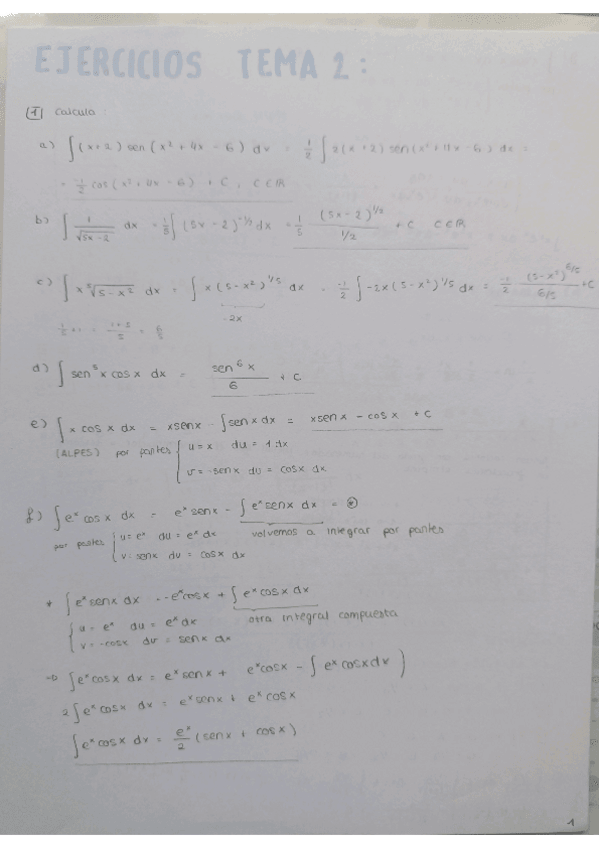 EJERCICIOS TEMA 2:
1 Calcula:
a) ∫(x+2) sen (x² + 4x - 6) dx = 1/2 ∫ 2(x+2) sen (x² + 4x - 6) dx =
= -1/2 cos (x² + 4x - 6) + C, C∈R
b) ∫ 1/√(5x-2) dx = 1/5 ∫ (5x-2)^(-1/2) dx = 1/5 (5x-2)^(1/2) / (1/2) + C C∈R
c) ∫ x ⁵√(5-x²) dx = ∫ x (5-x²)^(1/5) dx = -1/2 ∫ -2x (5-x²)^(1/5) dx = -1/2 (5-x²)^(6/5) / (6/5) + C
-2x
1/5 + 1 = (1+5)/5 = 6/5
d) ∫ sen⁵x cos x dx = sen⁶x / 6 + C
e) ∫ x cos x dx = x sen x - ∫ sen x dx = x sen x - cos x + C
(ALPES) por partes { u = x du = 1 dx
v = -sen x dv = cos x dx
f) ∫ eˣ cos x dx = eˣ sen x - ∫ eˣ sen x dx = ⊛
por partes { u = eˣ du = eˣ dx volvemos a integrar por partes
v = senx dv = cos x dx
* ∫ eˣ sen x dx = -eˣ cos x + ∫ eˣ cos x dx
{ u = eˣ du = eˣ dx otra integral compuesta
v = -cosx dv = sen x dx
→ ∫ eˣ cos x dx = eˣ sen x + eˣ cos x - ∫ eˣ cos x dx )
2 ∫ eˣ cos x dx = eˣ sen x + eˣ cos x
∫ eˣ cos x dx = eˣ/2 (sen x + cos x)
1